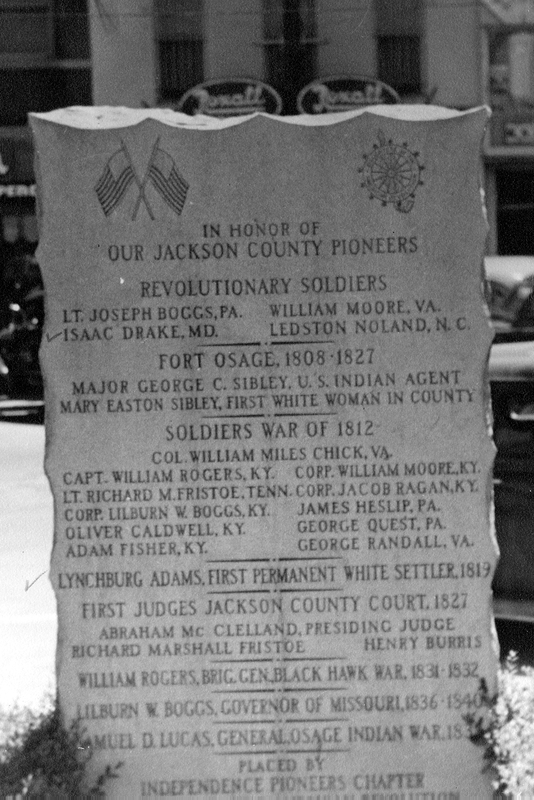 Rexall Rexall
IN HONOR OF
OUR JACKSON COUNTY PIONEERS
REVOLUTIONARY SOLDIERS
LT. JOSEPH BOGGS, PA. WILLIAM MOORE, VA.
ISAAC DRAKE, MD. LEDSTON NOLAND, N.C.
FORT OSAGE, 1808-1827
MAJOR GEORGE C. SIBLEY, U.S. INDIAN AGENT
MARY EASTON SIBLEY, FIRST WHITE WOMAN IN COUNTY
SOLDIERS WAR OF 1812
COL. WILLIAM MILES CHICK, VA.
CAPT. WILLIAM ROGERS, KY. CORP. WILLIAM MOORE, KY.
LT. RICHARD M. FRISTOE, TENN. CORP. JACOB RAGAN, KY.
CORP. LILBURN W. BOGGS, KY. JAMES HESLIP, PA.
OLIVER CALDWELL, KY. GEORGE QUEST, PA.
ADAM FISHER, KY. GEORGE RANDALL, VA.
LYNCHBURG ADAMS, FIRST PERMANENT WHITE SETTLER, 1819
FIRST JUDGES JACKSON COUNTY COURT, 1827
ABRAHAM Mc CLELLAND, PRESIDING JUDGE
RICHARD MARSHALL FRISTOE HENRY BURRIS
WILLIAM ROGERS, BRIG. GEN. BLACK HAWK WAR, 1831-1832
LILBURN W. BOGGS, GOVERNOR OF MISSOURI, 1836-1840
SAMUEL D. LUCAS, GENERAL, OSAGE INDIAN WAR, 183
PLACED BY
INDEPENDENCE PIONEERS CHAPTER